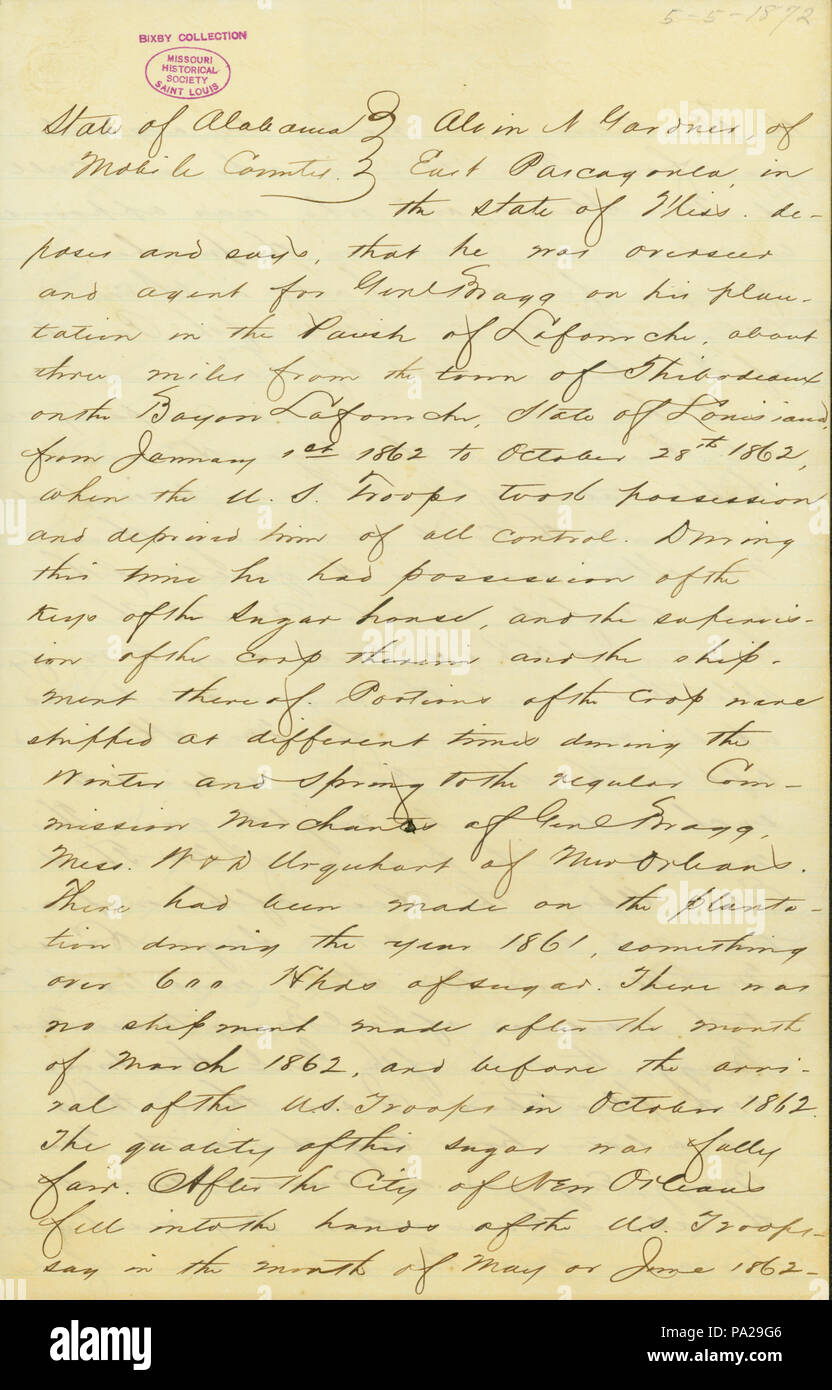 5-5-1872
BIXBY COLLECTION
MISSOURI
HISTORICAL
SOCIETY
SAINT LOUIS
State of Alabama } Alvin N Gardner, of
Mobile County. } East Pascagoula, in
the state of Miss. de-
poses and says, that he was overseer
and agent for Genl Bragg on his plan-
tation in the Parish of Lafourche, about
three miles from the town of Thibodeaux
on the Bayou Lafourche, State of Louisiana,
from January 1st 1862 to October 28th 1862,
when the U. S. Troops took possession
and deprived him of all control. During
this time he had possession of the
Keys of the Sugar house, and the supervis-
ion of the crop therein and the ship-
ment thereof. Portions of the crop were
shipped at different times during the
Winter and Spring to the regular Com-
mission Merchants of Genl Bragg,
Mess. W & D Urquhart of New Orleans.
There had been made on the planta-
tion during the year 1861, something
over 600 Hhds of sugar. There was
no shipment made after the month
of March 1862, and before the arri-
val of the U.S. Troops in October 1862.
The quality of this sugar was fully
fair. After the City of New Orleans
fell into the hands of the U.S. Troops-
say in the month of May or June 1862-
alamy
Image ID: PA29G6
www.alamy.com